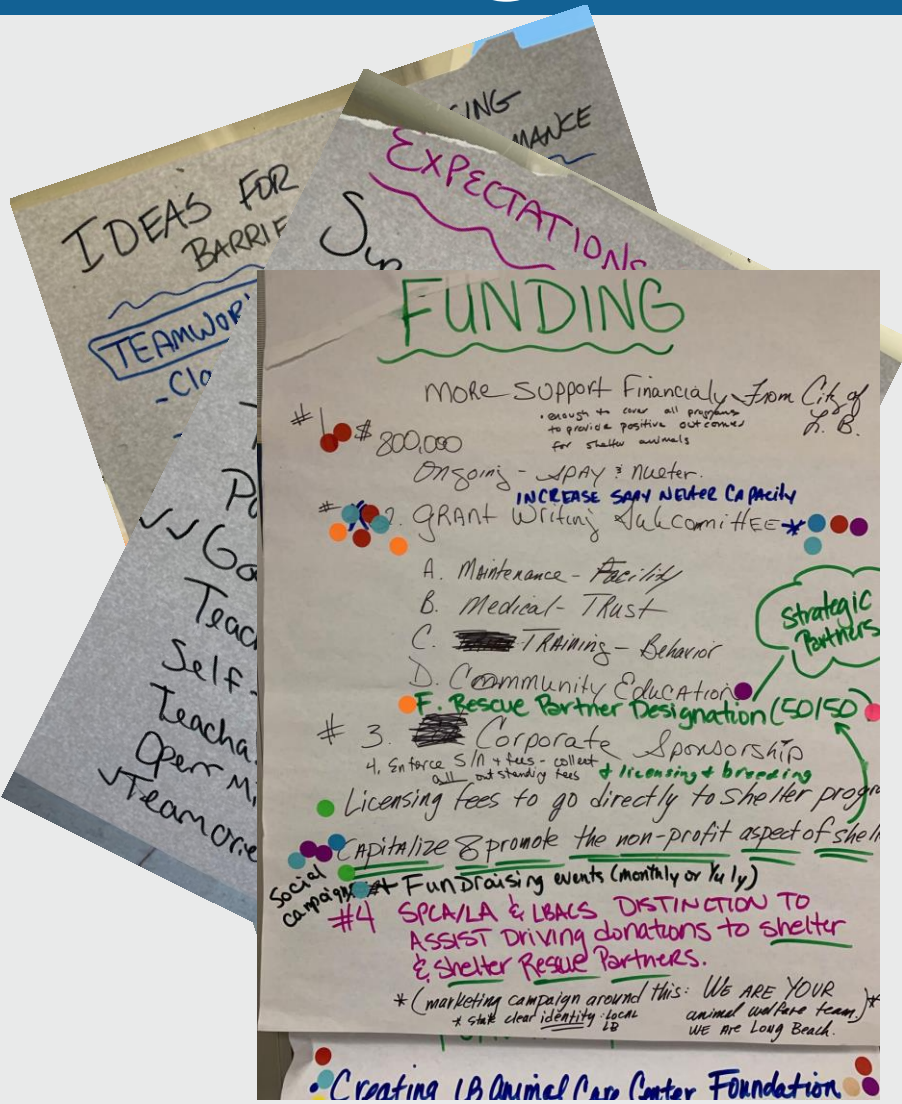 ING
MANCE
IDEAS FOR
BARRIE
TEAMWOR
- Clo
EXPECTATIONS
Sup
Po
✓✓ Go
Teac
Self-
Teacha
Open Mi
✓Teamorie
FUNDING
MORE SUPPORT Financialy From City of L.B.
• enough to cover all programs
to provide positive outcomes
for shelter animals
#1 $ 800,000
Ongoing - SPAY & nueter.
INCREASE SPAY NEUTER CAPACITY
# 2. GRANT Writing SubcommittEE *
A. Maintenance - Facility
B. Medical - TRust
C. TRAINING - Behavior
D. Community EducATION
Strategic
Partners
F. Rescue Partner Designation (50/50)
# 3. Corporate Sponsorship
4. Enforce S/N + fees - collect
all outstanding fees & licensing & breeding
Licensing fees to go directly to Shelter progr
CAPITALIZE & promote the non-profit aspect of shel
Social
campaigns
+ FunDraising events (monthly or Yuly)
#4 SPCA/LA & LBACS DISTINCTION TO
ASSIST Driving donations to shelter
& Shelter Resue Partners.
* (marketing campaign around this: WE ARE YOUR
animal welfare team.) *
* state clear identity: LOCAL
LB
WE ARE LONG BEACH.
• Creating LB Animal Care Center Foundation